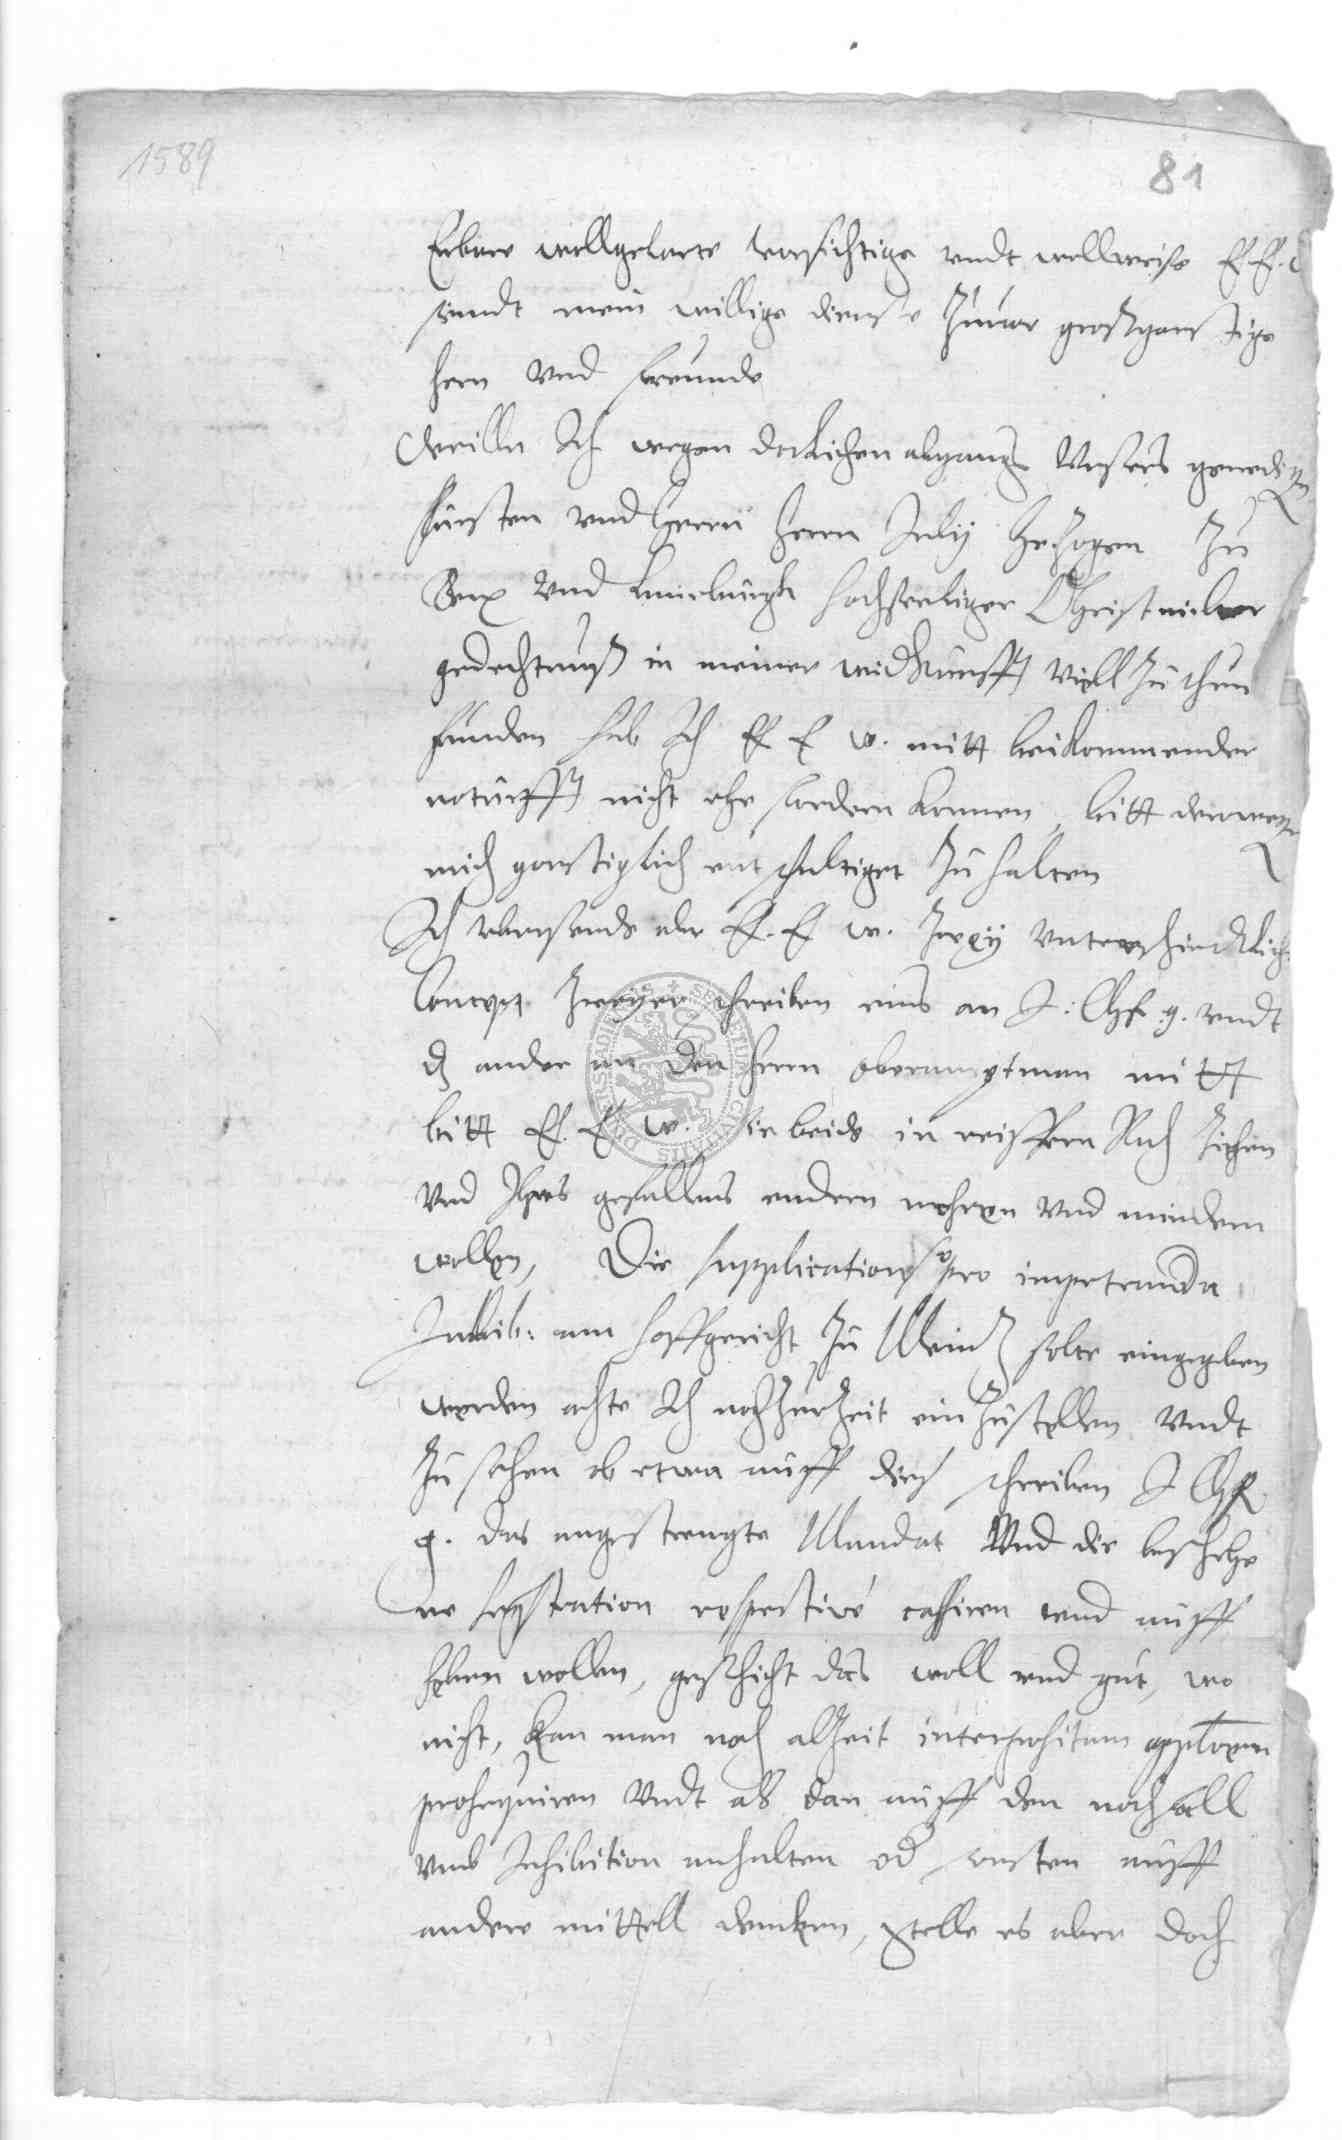 1589
81
Erbare wollgelarte vorsichtige undt wollweise E. E. w
seindt mein willige dienste zuuor großgonstige
hern vnd freunde
Weiln Ich wegen dotlichen abgangs Unsers genedigen
fursten vnd herrn herrn Julij Hertzogen zu
Br: vnd Luneburgk hochseeliger Christmilter
gedechtnuß in meiner widkunfft viell zu thun
funden hab Ich E E w. mitt beikommender
noturfft nicht ehe fordern konnen, bitt derwegen
mich gonstiglich entschuldiget zu halten
Ich ubersende aber E. E w. zwey unterschiedtliche
Concept zweyer schreiben eins an I: Chf. g. undt
dz ander an den hern oberamptman mitt
bitt E. E w. sie beide in reiffern Rath ziehen
vnd Ihres gefallens endern mehren vnd mindern
wollen, Die supplication so pro impetranda
Inhib: am hoffgericht zu Meintz solte eingegeben
werden achte Ich noch zur Zeit ein zustellen vndt
zu sehen ob etwa auff dies schreiben I Chf
g. das angestrengte Mandat Vnd die beschehe
ne sequestration respective cassiren vnd auff
heben wollen, geschicht das woll vnd gut, wo
nicht, kan man noch alzeit interpositam applonem
prosequiren Vndt als dan auff den nochfall
vmb Inhibition anhalten od sonsten auff
andere mittell dencken, stelle es aber doch